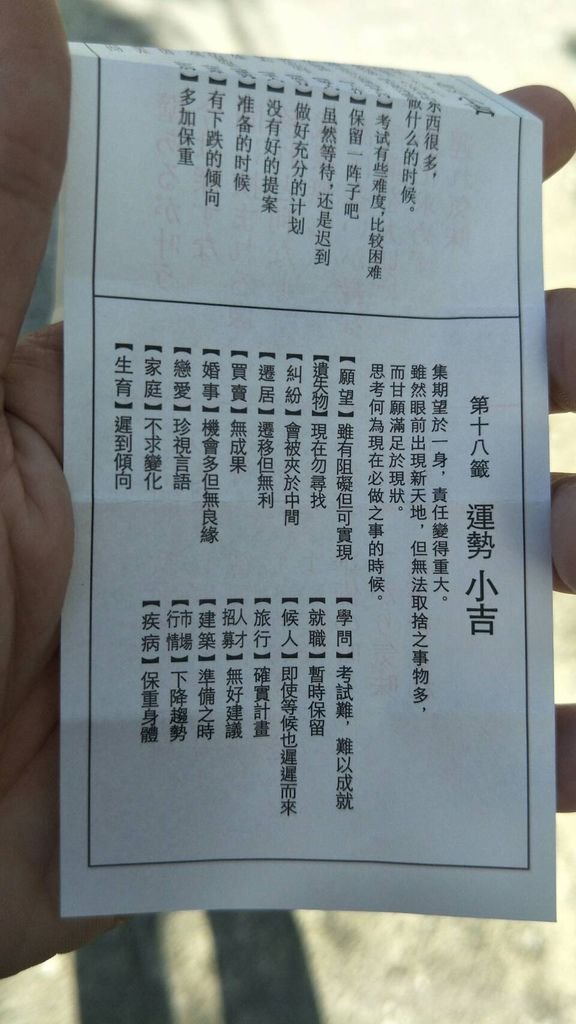 东西很多，
做什么的时候。
】考试有些难度，比较困难
】保留一阵子吧
】虽然等待，还是迟到
】做好充分的计划
】没有好的提案
】准备的时候
】有下跌的倾向
】多加保重
第十八籤 運勢 小吉
集期望於一身，責任變得重大。
雖然眼前出現新天地，但無法取捨之事物多，
而甘願滿足於現狀。
思考何為現在必做之事的時候。
【願望】雖有阻礙但可實現
【遺失物】現在勿尋找
【糾紛】會被夾於中間
【遷居】遷移但無利
【買賣】無成果
【婚事】機會多但無良緣
【戀愛】珍視言語
【家庭】不求變化
【生育】遲到傾向
【學問】考試難，難以成就
【就職】暫時保留
【候人】即使等候也遲遲而來
【旅行】確實計畫
【人才招募】無好建議
【建築】準備之時
【市場行情】下降趨勢
【疾病】保重身體